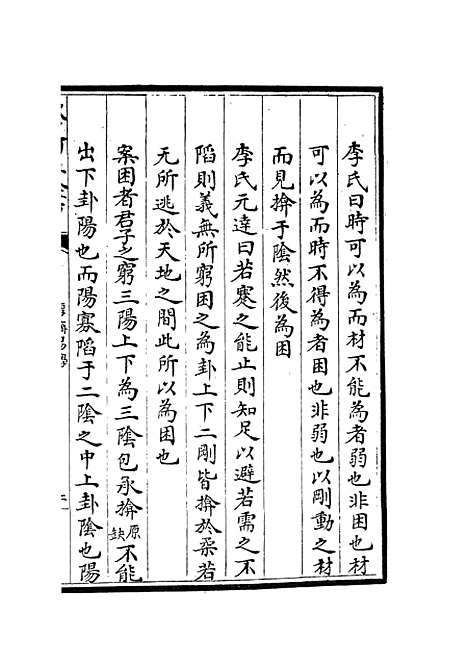 李氏曰時可以為而材不能為者弱也非困也材
可以為而時不得為者困也非弱也以剛動之材
而見揜于陰然後為困
李氏元達曰若蹇之能止則知足以避若需之不
陷則義無所窮困之為卦上下二剛皆揜於柔若
无所逃於天地之間此所以為困也
案困者君子之窮三陽上下為三陰包承揜原缺不能
出下卦陽也而陽寡陷于二陰之中上卦陰也陽